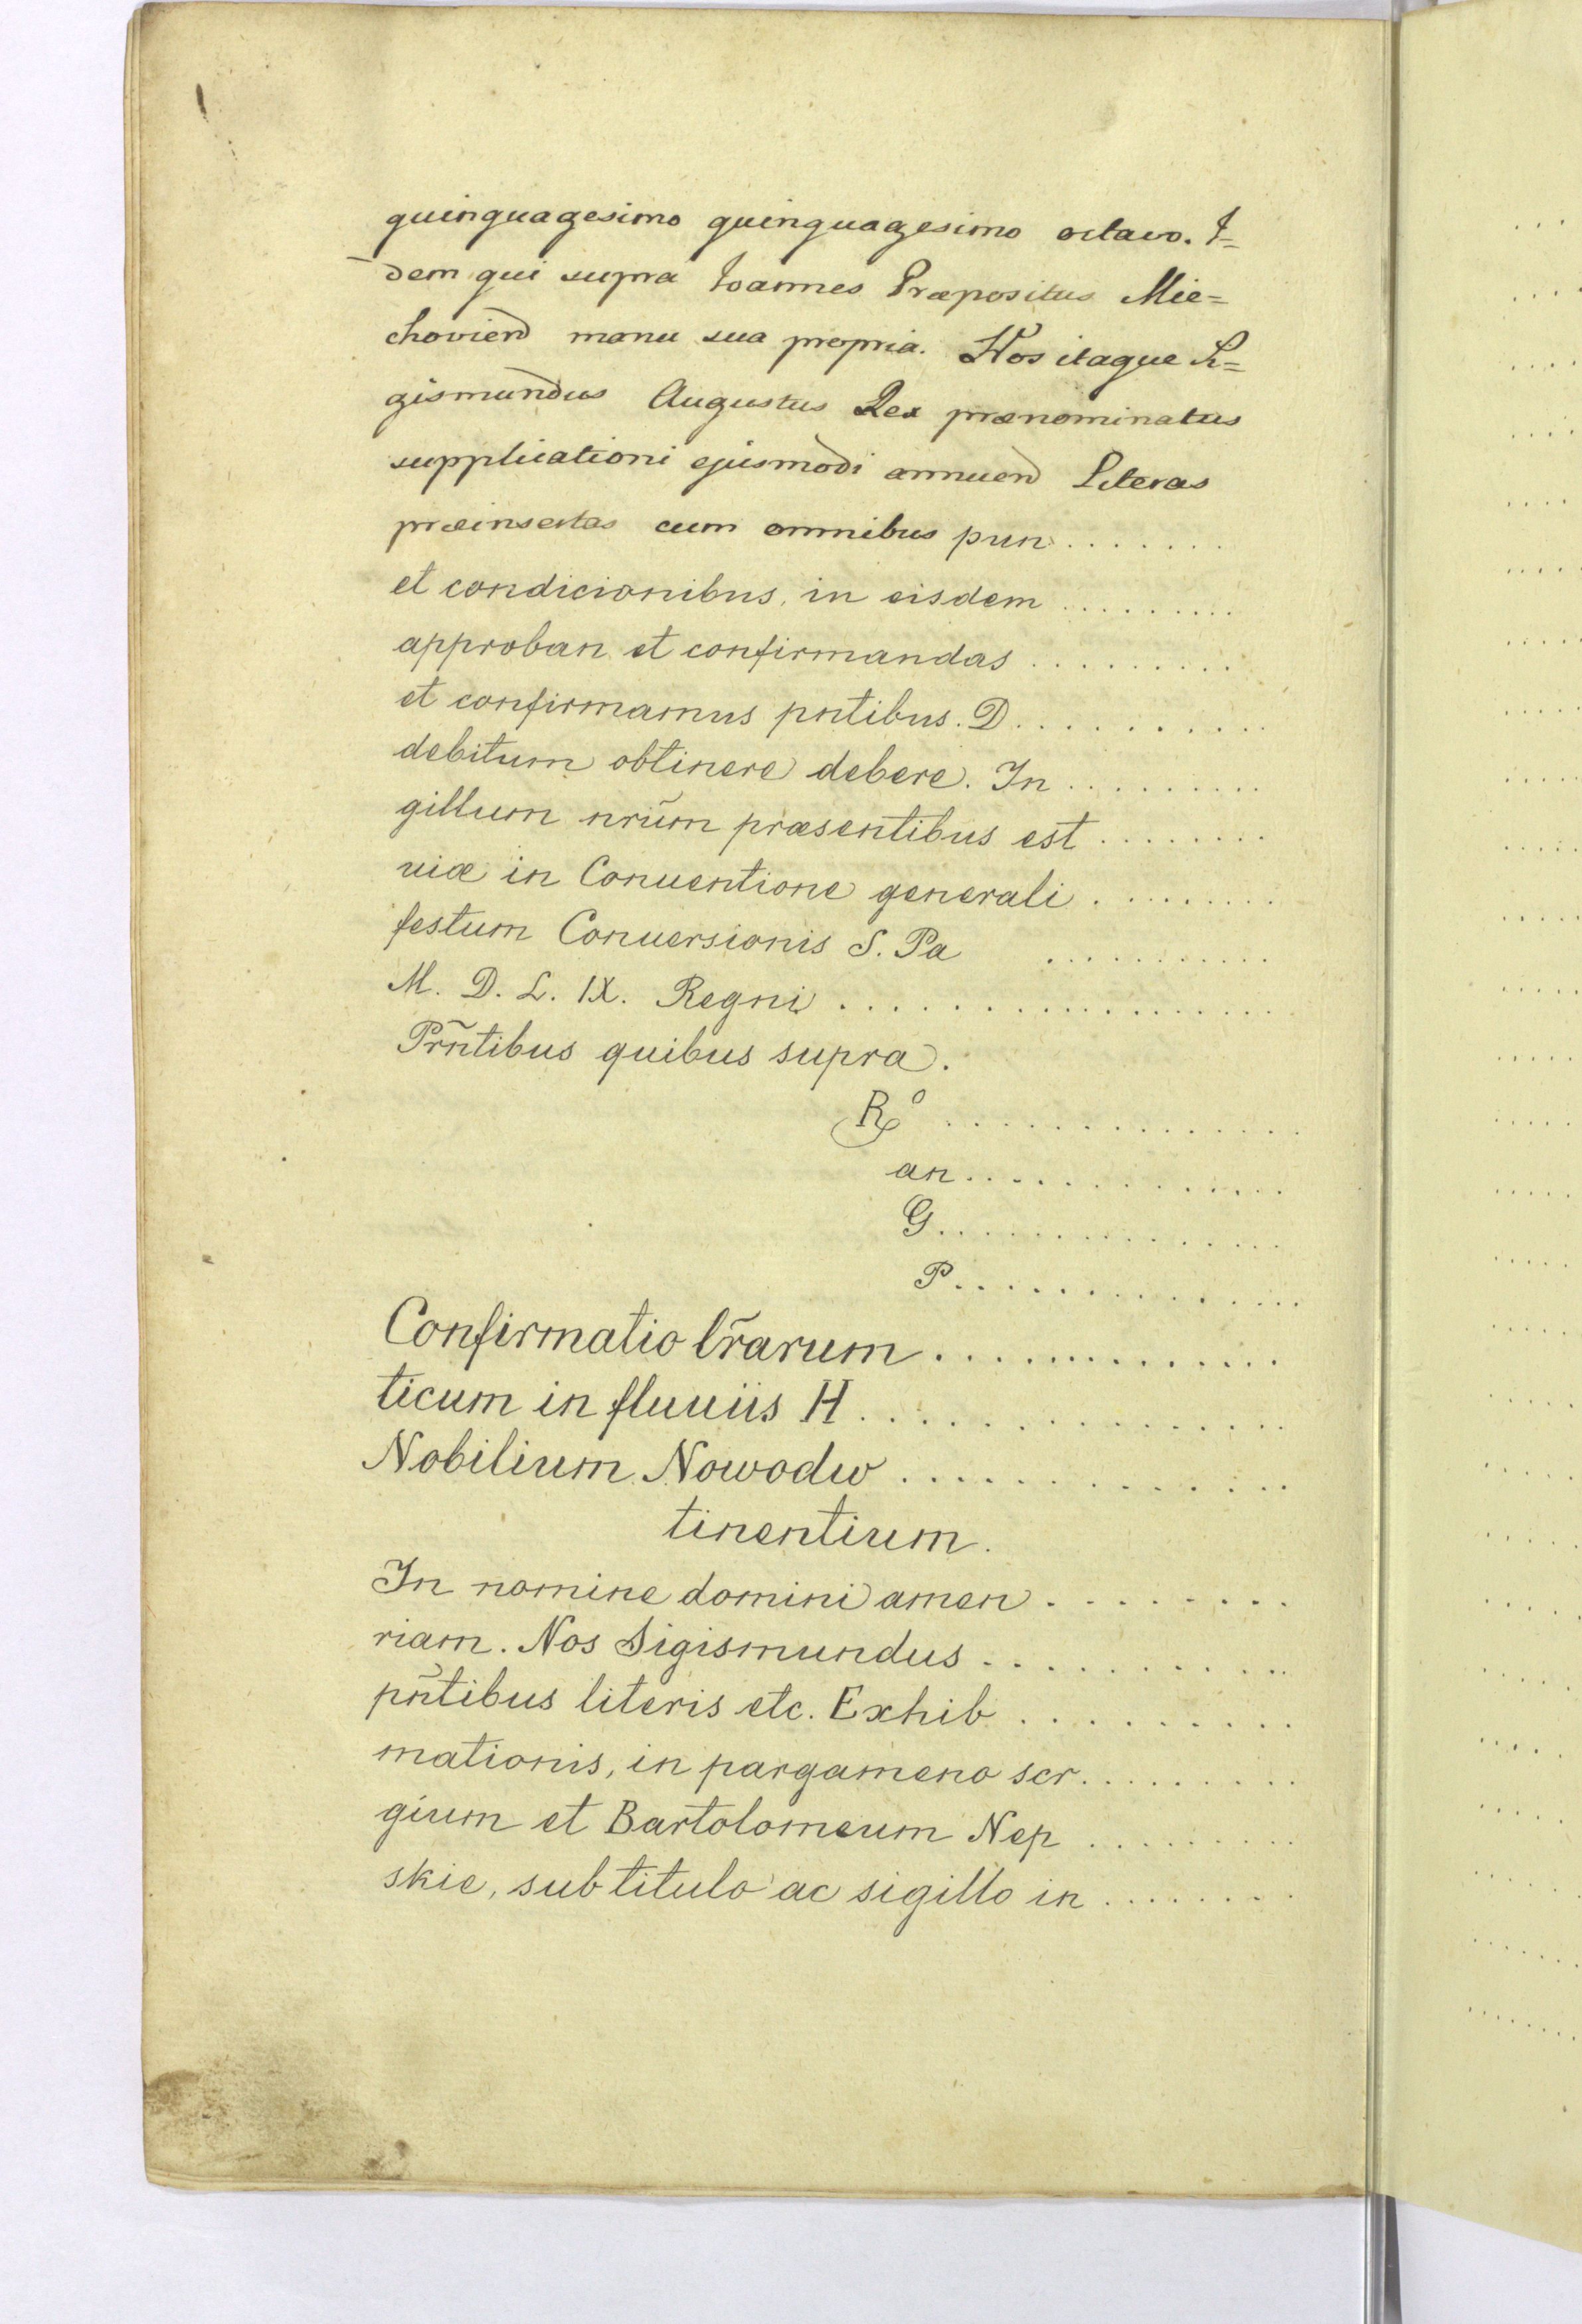 quinquagesimo quinquagesimo octavo. I=
dem qui supra Ioannes Præpositus Mie=
choviend manu sua propria. Nos itaque Si=
gismundus Augustus Rex prænominatus
supplicationi ejusmodi annuend Literas
præinsertas cum omnibus pun.......
et condicionibus, in eisdem .........
approban et confirmandas .........
et confirmamus pntibus. D...........
debitum obtinere debere. In .........
gillum nrũm præsentibus est ........
uiæ in Conuentione generali .........
festum Conuersionis S. Pa ...........
M. D. L. IX. Regni ..................
Prñtibus quibus supra.
R° ...............
an..............
G...............
P...............
Confirmatio lr̃arum ..............
ticum in fluuiis H ...............
Nobilium Nowodw .............
tinentium.
In nomine domini amen ........
riam. Nos Sigismundus ...........
pñtibus literis etc. Exhib ..........
mationis, in pargameno scr.........
gium et Bartolomeum Nep .........
skie, sub titulo ac sigillo in ........